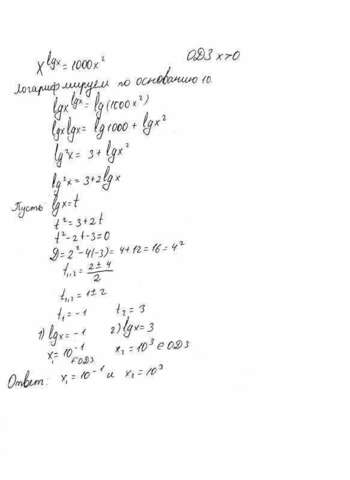 x^lgx = 1000x² ОДЗ x>0
логарифмируем по основанию 10.
lgx^lgx = lg(1000x²)
lgx lgx = lg1000 + lgx²
lg²x = 3 + lgx²
lg²x = 3+2lgx
Пусть lgx = t
t² = 3+2t
t²-2t-3=0
D = 2²-4(-3) = 4+12 = 16 = 4²
t₁,₂ = (2 ± 4)/2
t₁,₂ = 1±2
t₁ = -1 t₂ = 3
1) lgx = -1 2) lgx = 3
x₁ = 10⁻¹ ∈ОДЗ x₂ = 10³ ∈ ОДЗ
Ответ: x₁ = 10⁻¹ и x₂ = 10³